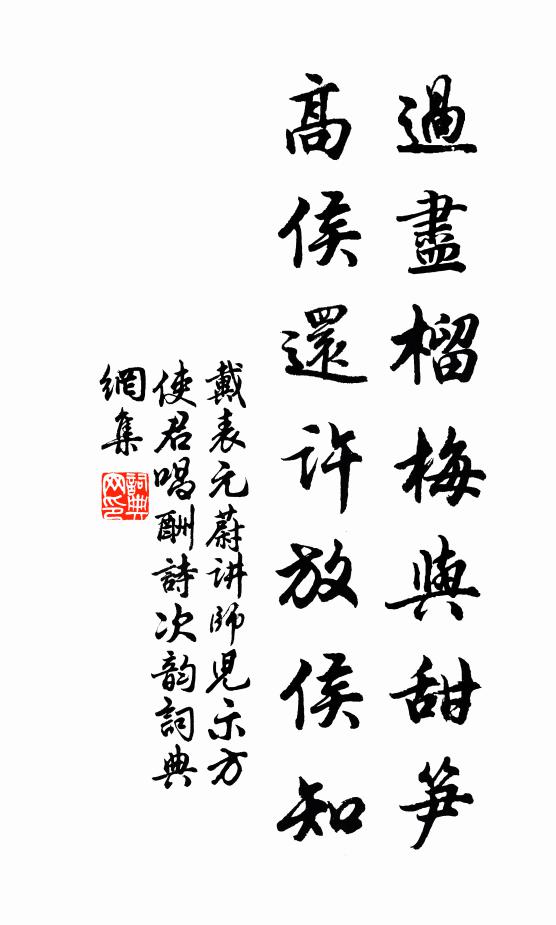 過盡榴梅與甜笋
高侯還許放侯知
戴表元蔚讲師見示方
使君唱酬詩次韵詞典
網集
詞典
网印